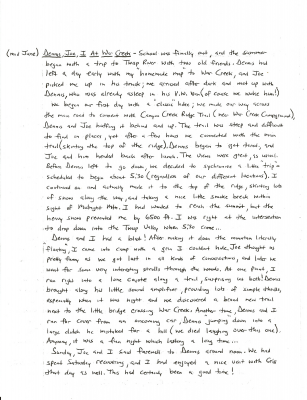 (mid June) Denny, Joe, I At War Creek - School was finally out, and the summer
began with a trip to Twisp River with two old friends. Denny had
left a day early with my "homemade map" to War Creek, and Joe
picked me up in his truck; we arrived after dark and met up with
Denny, who was already asleep in his V.W. Van (of course we woke him!)
We began our first day with a "classic" hike; we made our way across
the main road to connect with Canyon Creek Ridge Trail (near War Creek Campground),
Denny and Joe huffing it behind me up. The trail was steep and difficult
to find in places, yet after a few hours we connected with the main
trail (skirting the top of the ridge). Denny began to get tired, and
Joe and him headed back after lunch. The views were great, as usual.
Before Denny left to go down, we decided to synchronize a little trip
scheduled to begin about 5:30 (regardless of our different locations). I
continued on and actually made it to the top of the ridge, skirting lots
of snow along the way, and taking a nice little smoke break within
sight of Midnight Mtn. I had wanted to reach the summit, but the
heavy snow prevented me by 6500 ft. I was right at the intersection
to drop down into the Twisp Valley when 5:30 came...
Denny and I had a blast! After making it down the mountain literally
floating, I came into camp with a grin I couldn't hide. Joe thought it
pretty funny as we got lost in all kinds of conversations, and later we
went for some very interesting strolls through the woods. At one point, I
ran right into a lone coyote along a trail, surprising us both! Denny
brought along his little sound amplifier, providing lots of simple thrills,
especially when it was night and we discovered a brand new trail
next to the little bridge crossing War Creek. Another time, Denny and I
ran for cover from an oncoming car, Denny jumping down into a
large ditch he mistook for a hill (we died laughing over this one).
Anyway, it was a fun night which lasted a long time...
Sunday, Joe and I said farewell to Denny around noon. We had
spent Saturday recovering, and I had enjoyed a nice visit with Eric
that day as well. This had certainly been a good time!